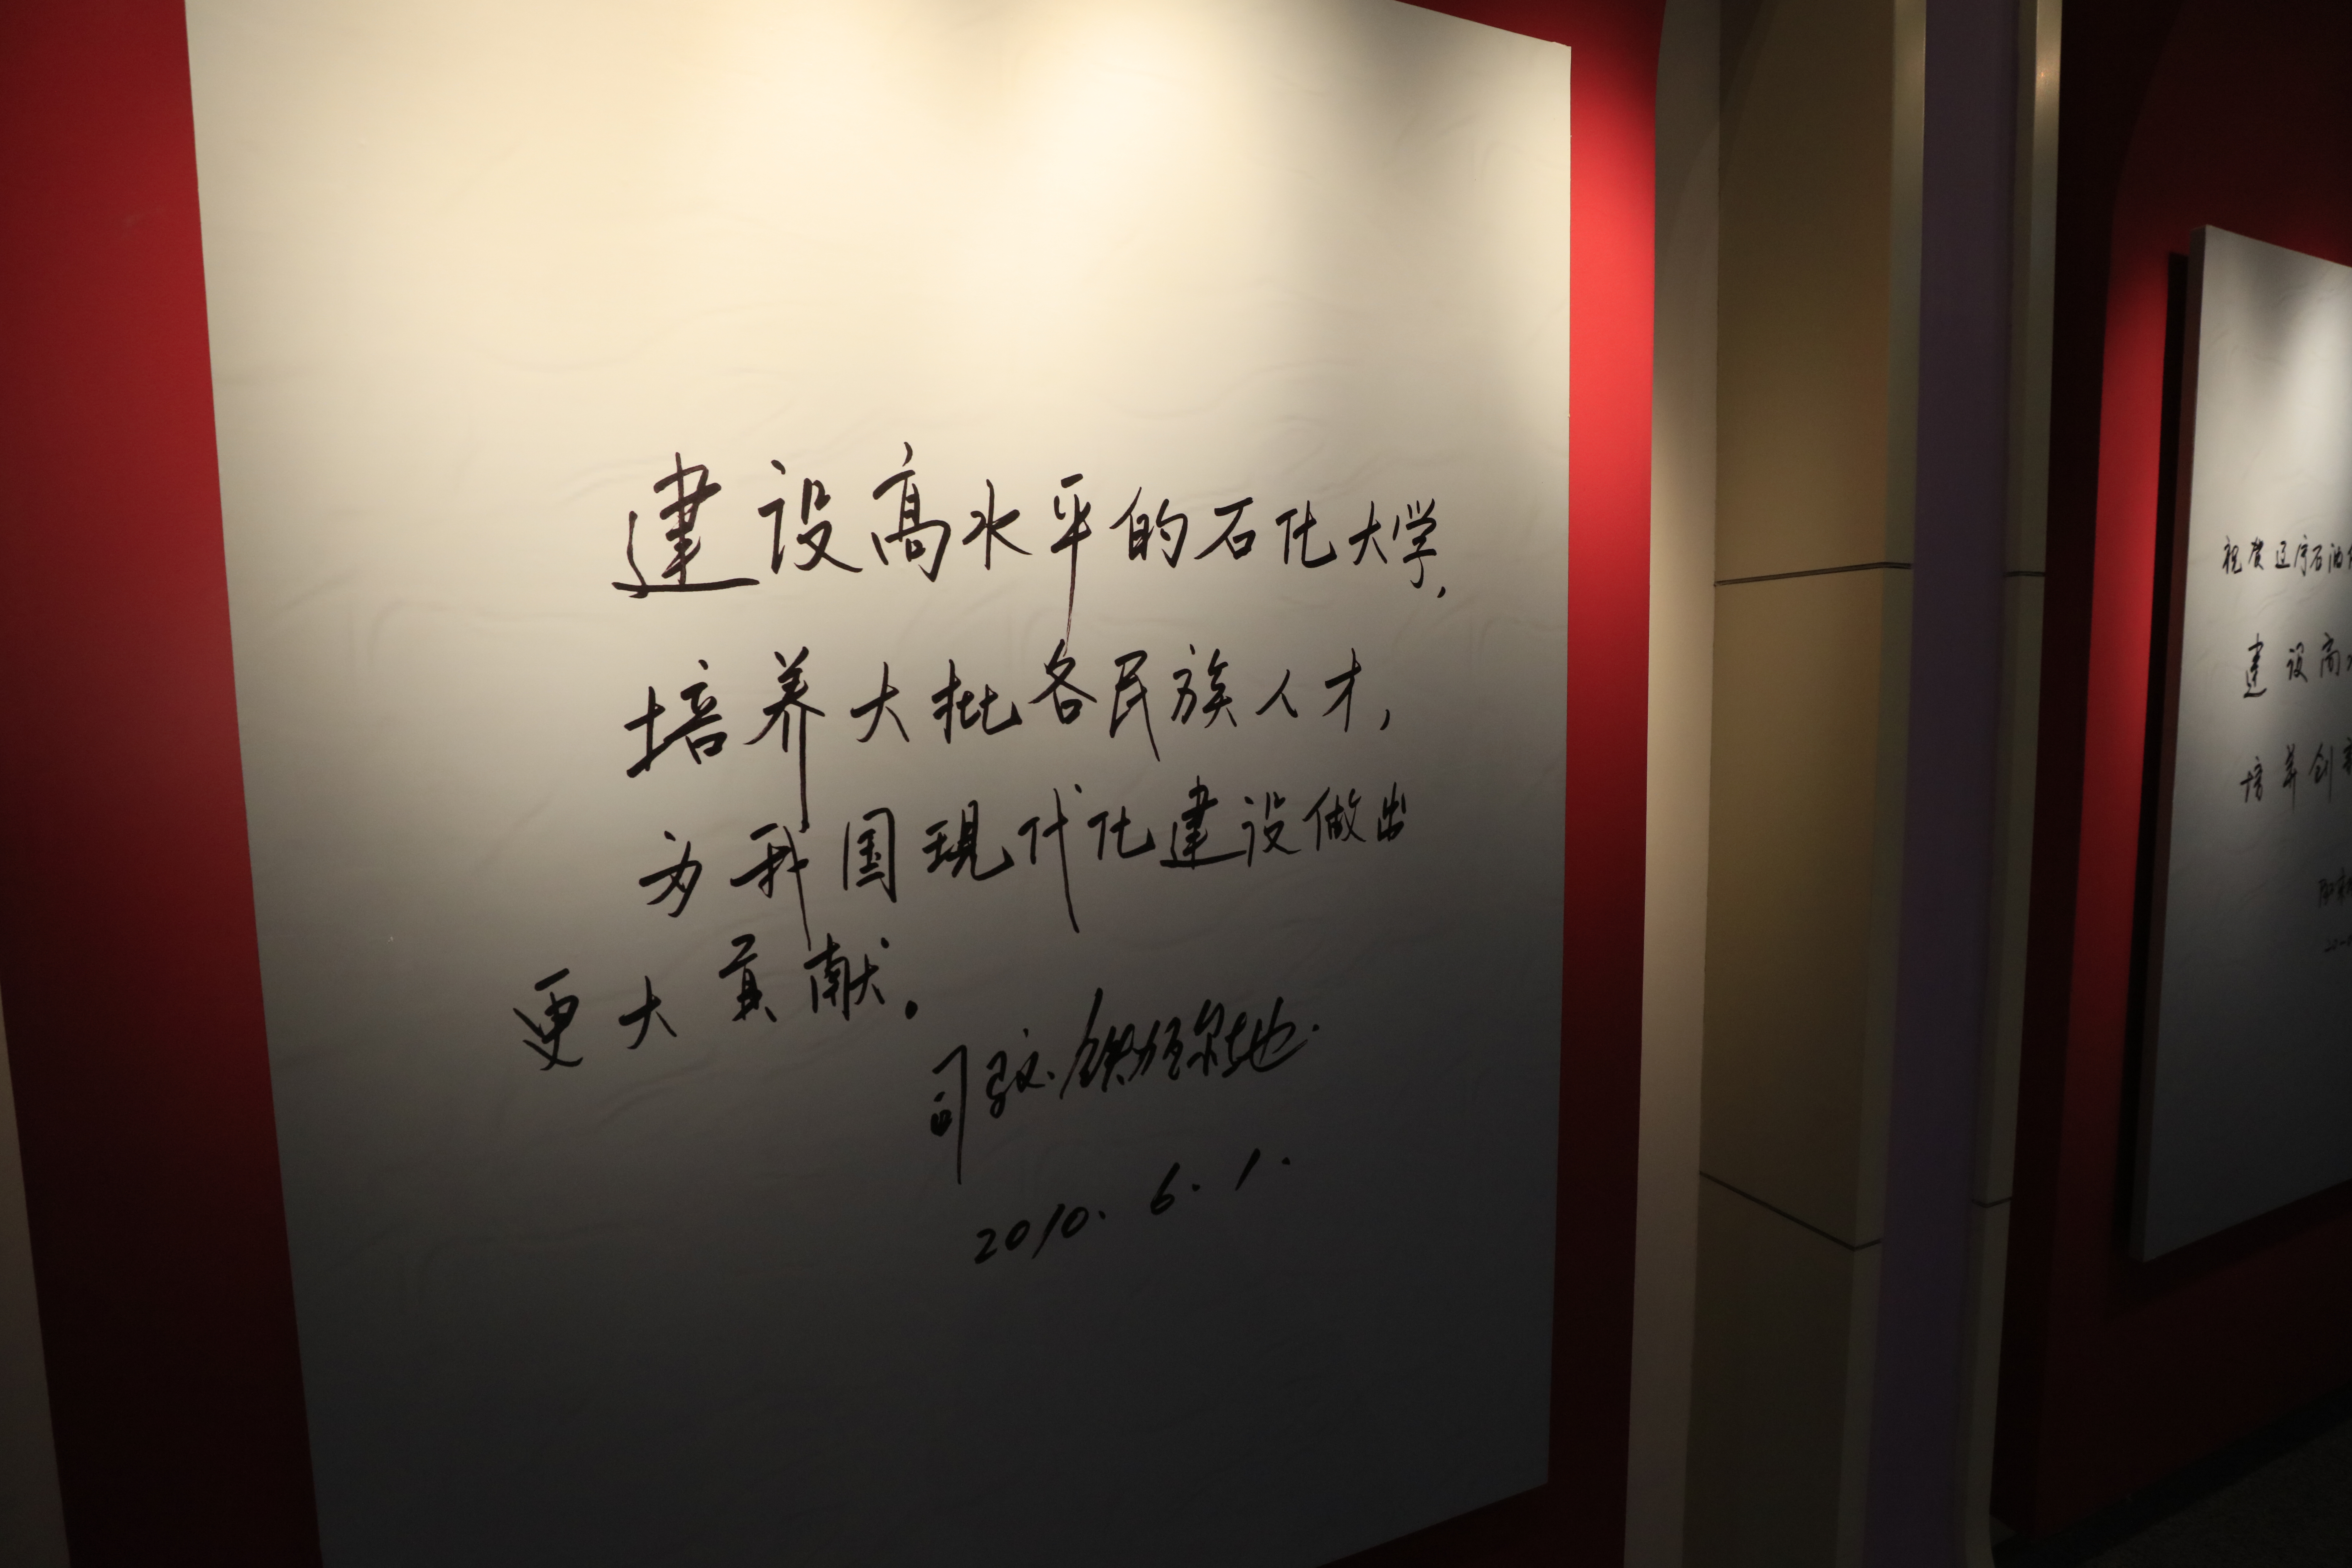 建设高水平的石化大学,
培养大批各民族人才,
为我国现代化建设做出
更大贡献.
司马义·铁力瓦尔地
2010. 6. 1.
祝贺辽宁石油
建设高
培养创